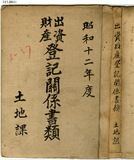 昭和十二年度
出資
財産
登記關係書類
土地課
出資財産登記關係書類
土地課